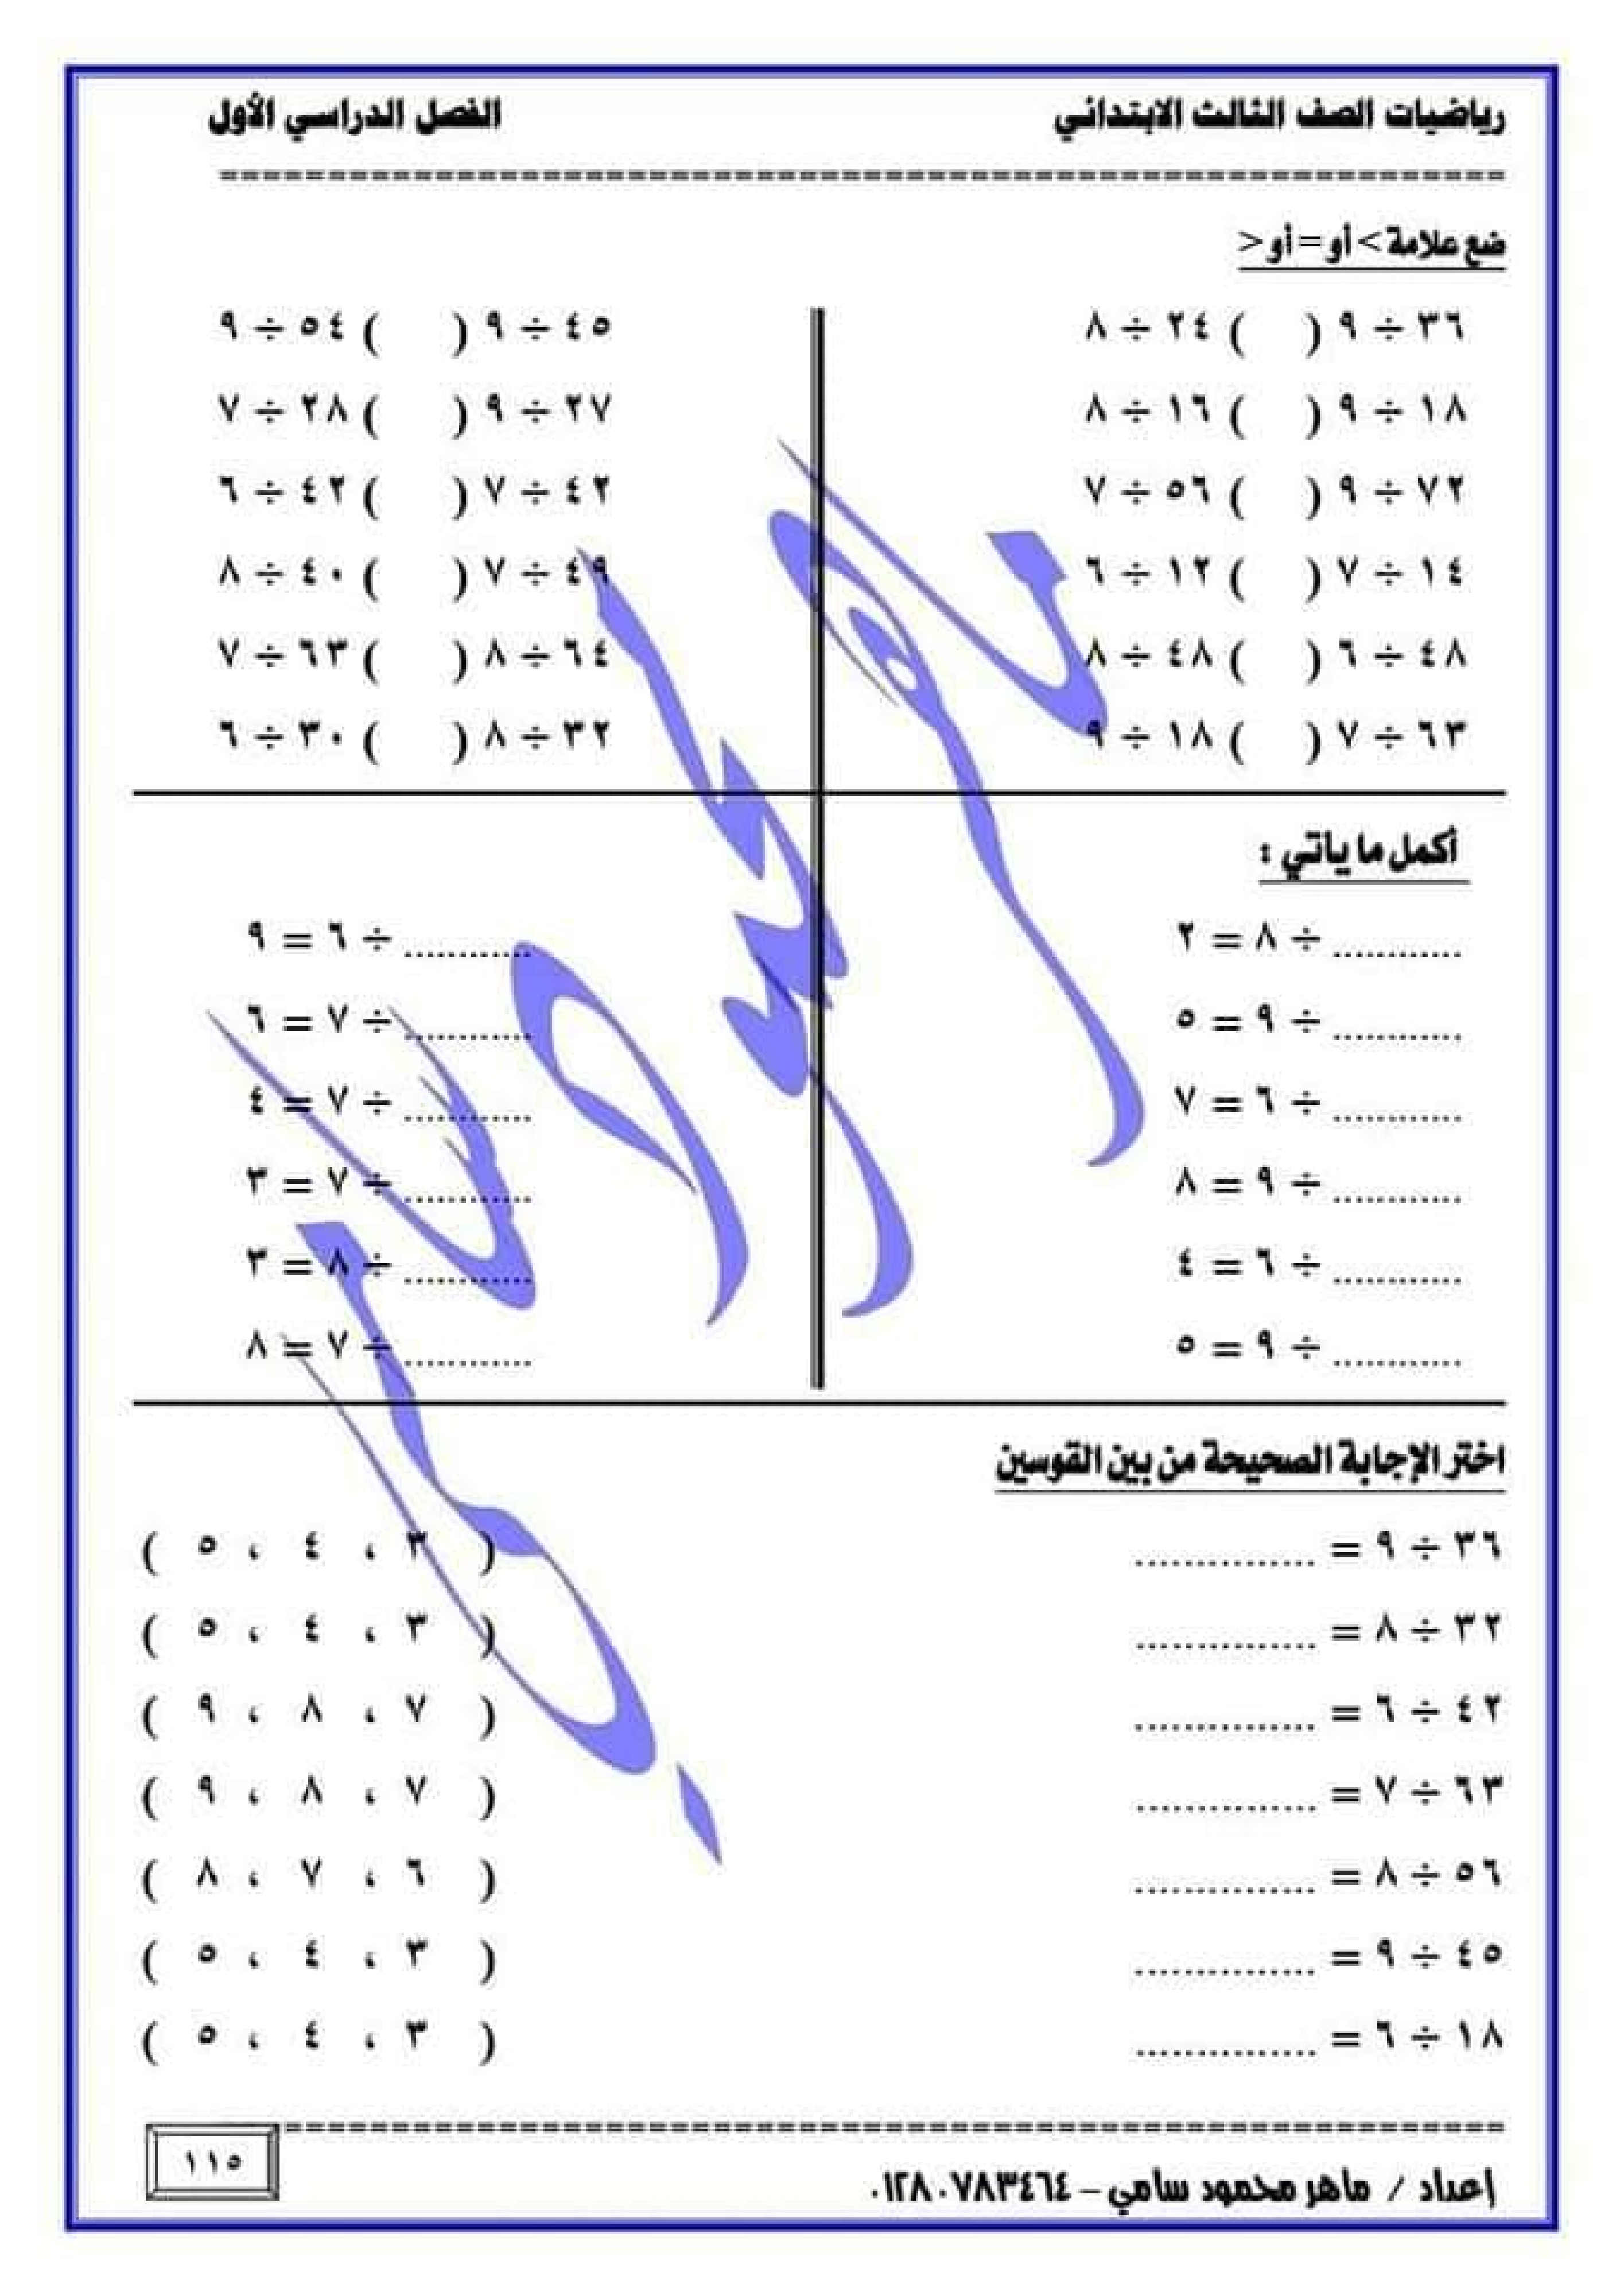 رياضيات الصف الثالث الابتدائي الفصل الدراسي الأول
ضع علامة > أو = أو <
٣٦ ÷ ٩ ( ) ٢٤ ÷ ٨
١٨ ÷ ٩ ( ) ١٦ ÷ ٨
٧٢ ÷ ٩ ( ) ٥٦ ÷ ٧
١٤ ÷ ٧ ( ) ١٢ ÷ ٦
٤٨ ÷ ٦ ( ) ٤٨ ÷ ٨
٦٣ ÷ ٧ ( ) ١٨ ÷ ٩
٤٥ ÷ ٩ ( ) ٥٤ ÷ ٩
٢٧ ÷ ٩ ( ) ٢٨ ÷ ٧
٤٢ ÷ ٧ ( ) ٤٢ ÷ ٦
٤٩ ÷ ٧ ( ) ٤٠ ÷ ٨
٦٤ ÷ ٨ ( ) ٦٣ ÷ ٧
٣٢ ÷ ٨ ( ) ٣٠ ÷ ٦
أكمل ما يأتي :
............ ÷ ٨ = ٢
............ ÷ ٩ = ٥
............ ÷ ٦ = ٧
............ ÷ ٩ = ٨
............ ÷ ٦ = ٤
............ ÷ ٩ = ٥
............ ÷ ٦ = ٩
............ ÷ ٧ = ٦
............ ÷ ٧ = ٤
............ ÷ ٧ = ٣
............ ÷ ٨ = ٣
............ ÷ ٧ = ٨
اختر الإجابة الصحيحة من بين القوسين
٣٦ ÷ ٩ = ............... ( ٣ ، ٤ ، ٥ )
٣٢ ÷ ٨ = ............... ( ٣ ، ٤ ، ٥ )
٤٢ ÷ ٦ = ............... ( ٧ ، ٨ ، ٩ )
٦٣ ÷ ٧ = ............... ( ٧ ، ٨ ، ٩ )
٥٦ ÷ ٨ = ............... ( ٦ ، ٧ ، ٨ )
٤٥ ÷ ٩ = ............... ( ٣ ، ٤ ، ٥ )
١٨ ÷ ٦ = ............... ( ٣ ، ٤ ، ٥ )
١١٥
إعداد / ماهر محمود سامي – ٠١٢٨٠٧٨٣٤٦٤